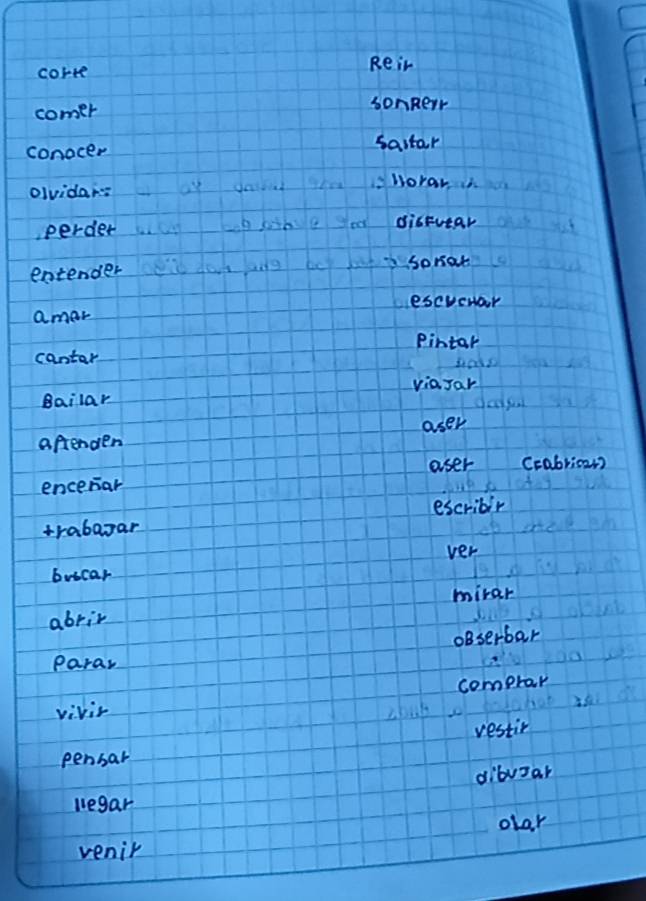 corre
comer
conocer
olvidar
perder
entender
amar
cantar
Bailar
aprender
enceñar
trabajar
buscar
abrir
Parar
vivir
pensar
llegar
venir
Reir
sonReir
saltar
llorar
disFutar
soñar
escuchar
Pintar
viajar
aser
aser (Frabricar)
escribir
ver
mirar
oBserbar
comprar
vestir
dibujar